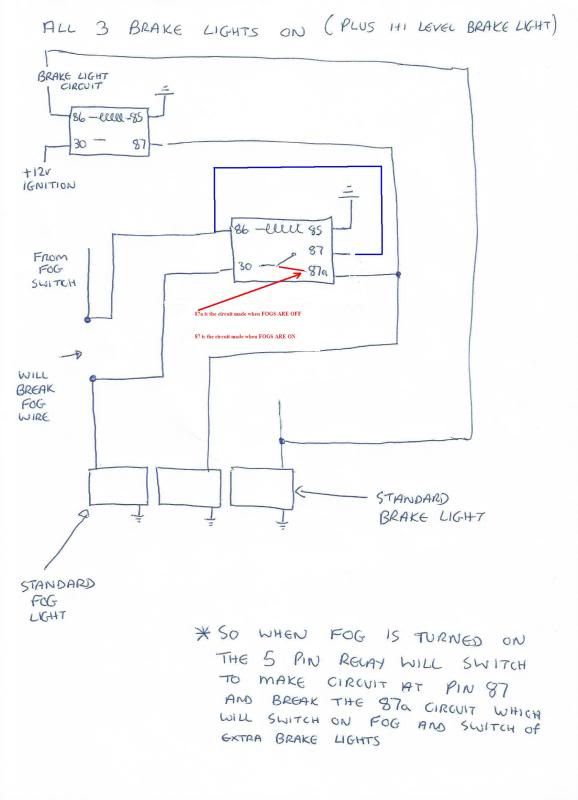 ALL 3 BRAKE LIGHTS ON (PLUS HI LEVEL BRAKE LIGHT)
BRAKE LIGHT
CIRCUIT
86 85
30 87
+12V
IGNITION
86 85
87
30 87a
FROM
FOG
SWITCH
87a is the circuit made when FOGS ARE OFF
87 is the circuit made when FOGS ARE ON
WILL
BREAK
FOG
WIRE
STANDARD
BRAKE LIGHT
STANDARD
FOG
LIGHT
* SO WHEN FOG IS TURNED ON
THE 5 PIN RELAY WILL SWITCH
TO MAKE CIRCUIT AT PIN 87
AND BREAK THE 87a CIRCUIT WHICH
WILL SWITCH ON FOG AND SWITCH of
EXTRA BRAKE LIGHTS